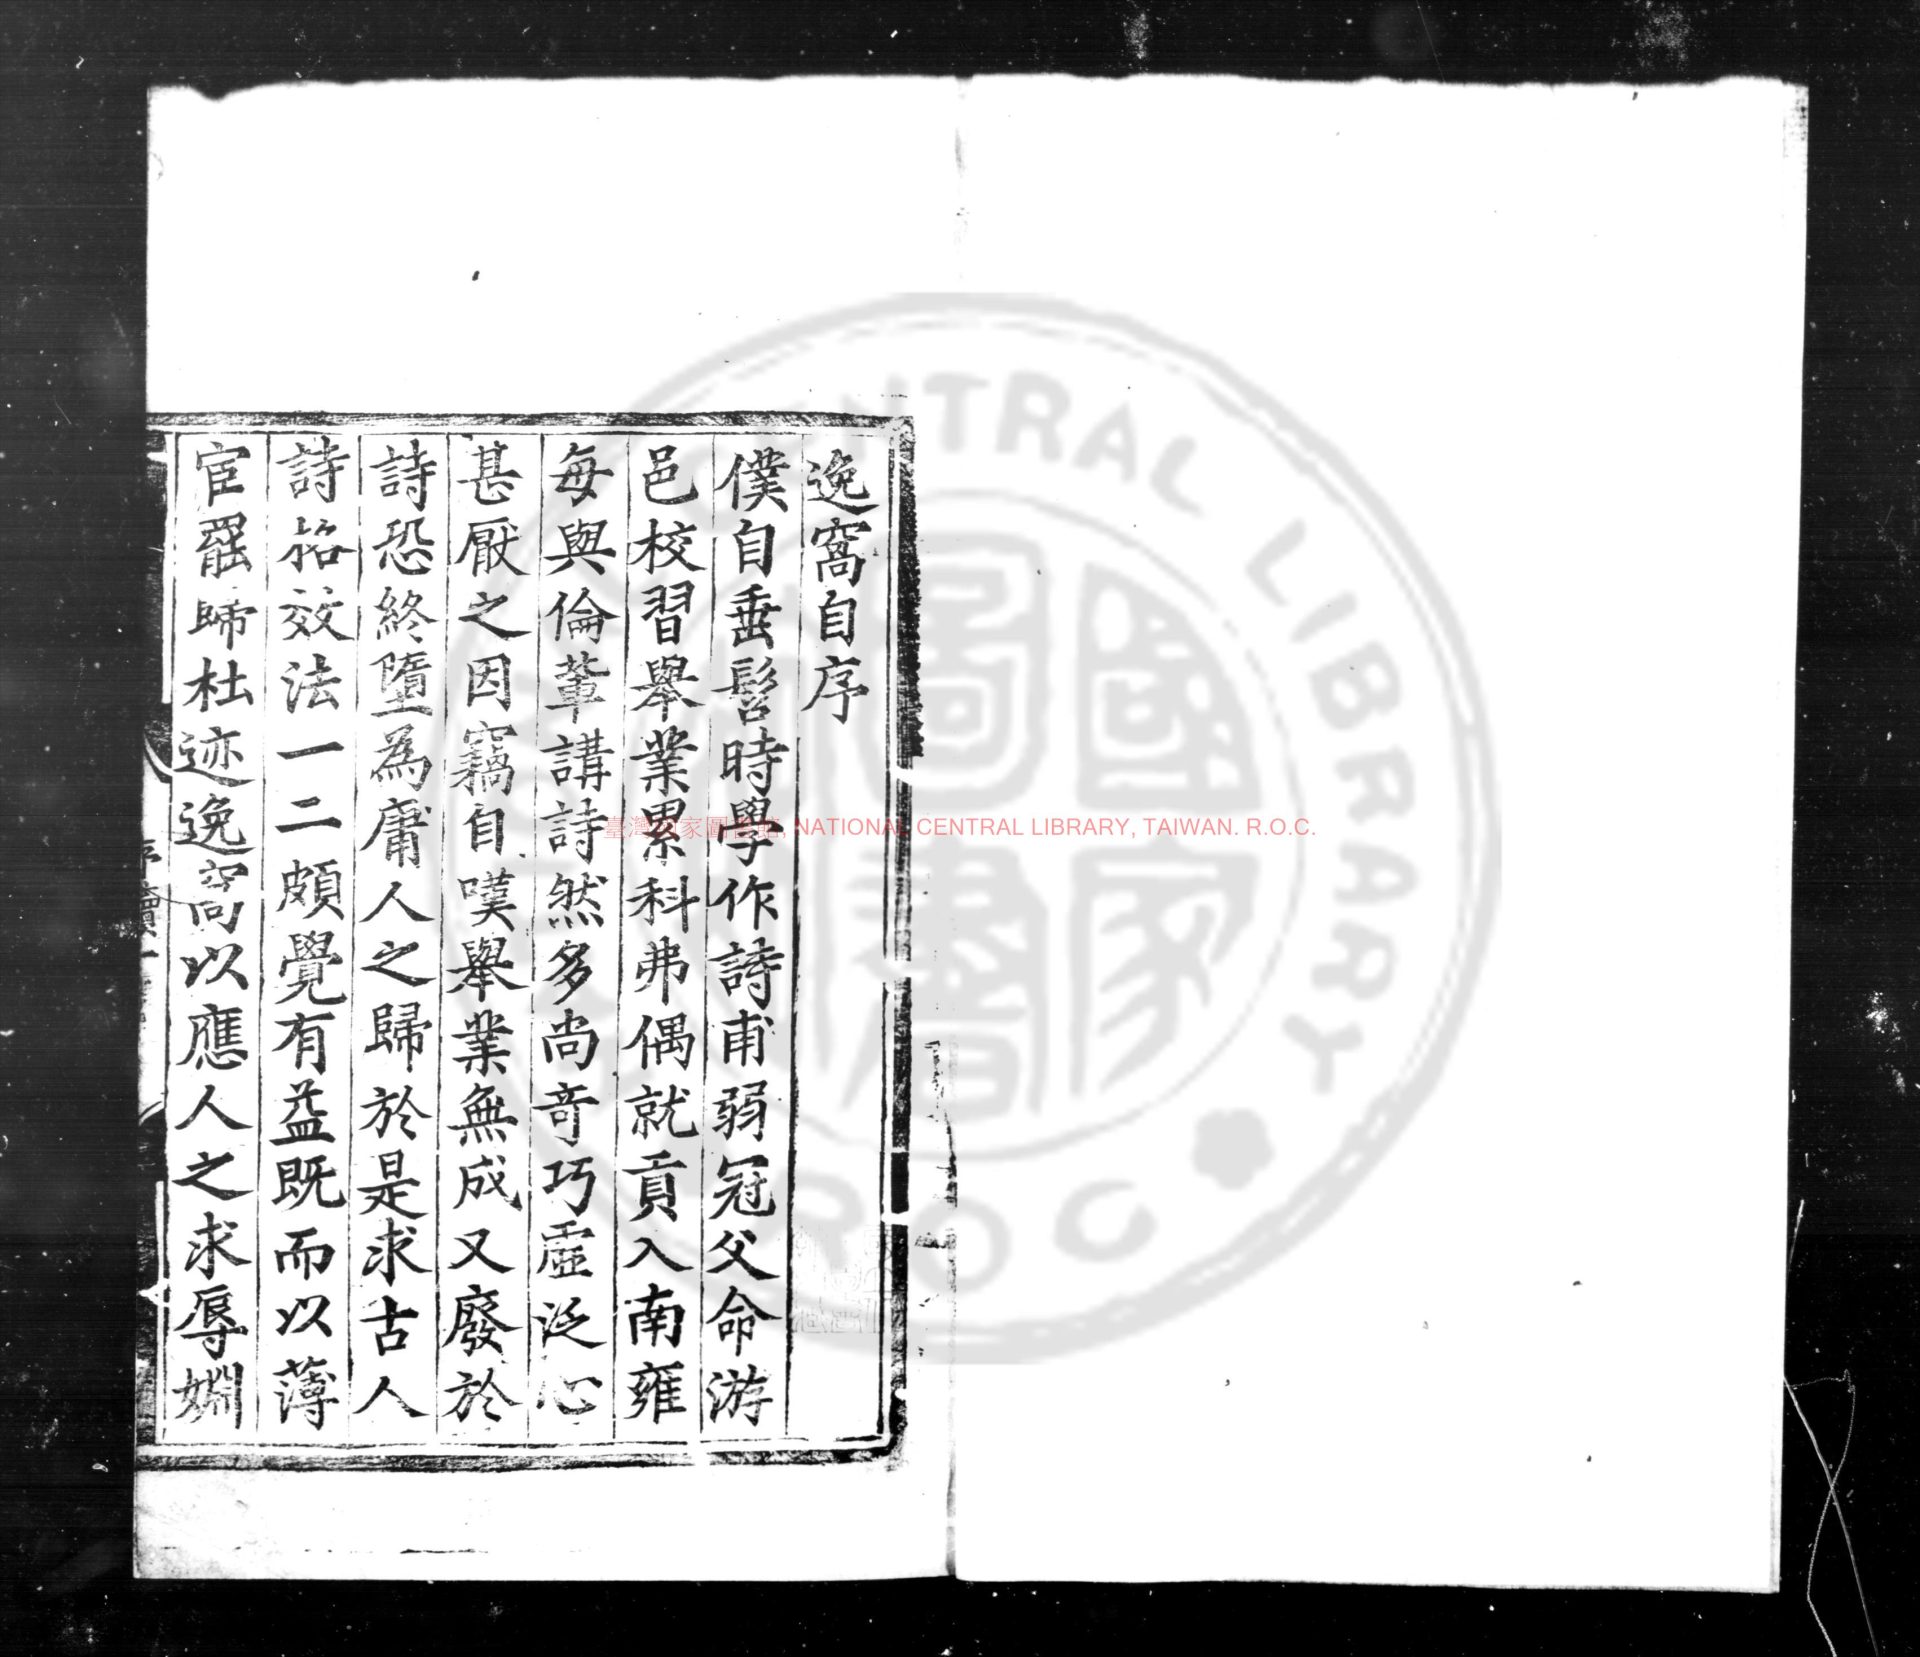 逸窩自序
僕自垂髫時學作詩甫弱冠父命游
邑校習舉業累科弗偶就貢入南雍
每與倫輩講詩然多尚奇巧虛泛心
甚厭之因竊自嘆舉業無成又廢於
詩恐終墮為庸人之歸於是求古人
詩格效法一二頗覺有益既而以薄
宦罷歸杜迹逸窩以應人之求辱婣
臺灣國家圖書館, NATIONAL CENTRAL LIBRARY, TAIWAN. R.O.C.
CENTRAL LIBRARY
R.O.C
國家圖書